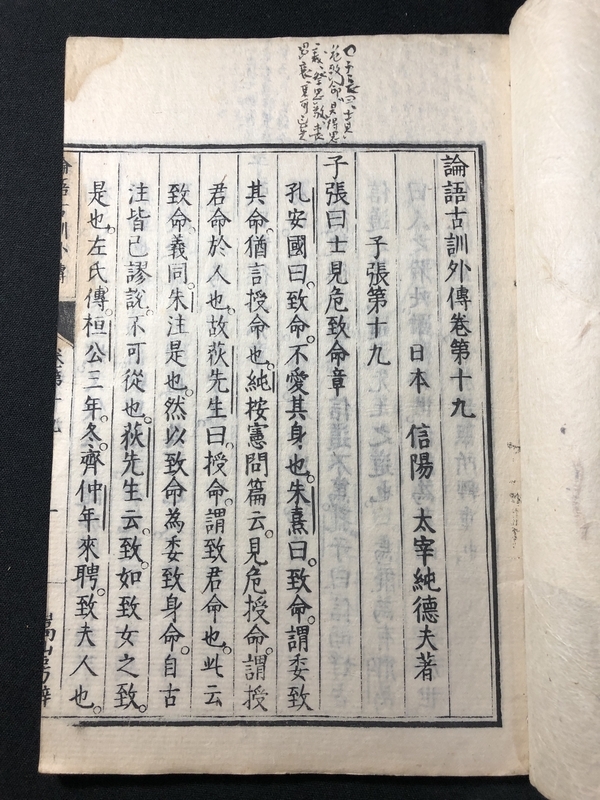 論語古訓外傳卷第十九
日本 信陽 太宰純德夫著
子張第十九
子張曰士見危致命章
孔安國曰。致命。不愛其身也。朱熹曰。致命。謂委致
其命。猶言授命也。純按憲問篇云。見危授命。謂授
君命於人也。故荻先生曰。授命。謂致君命也。此云
致命。義同。朱注是也。然以致命為委致身命。自古
注皆已謬說。不可從也。荻先生云。致。如致女之致。
是也。左氏傳。桓公三年。冬。齊仲年來聘。致夫人也。
論語古訓外傳
卷第十九
一
嵩山房梓